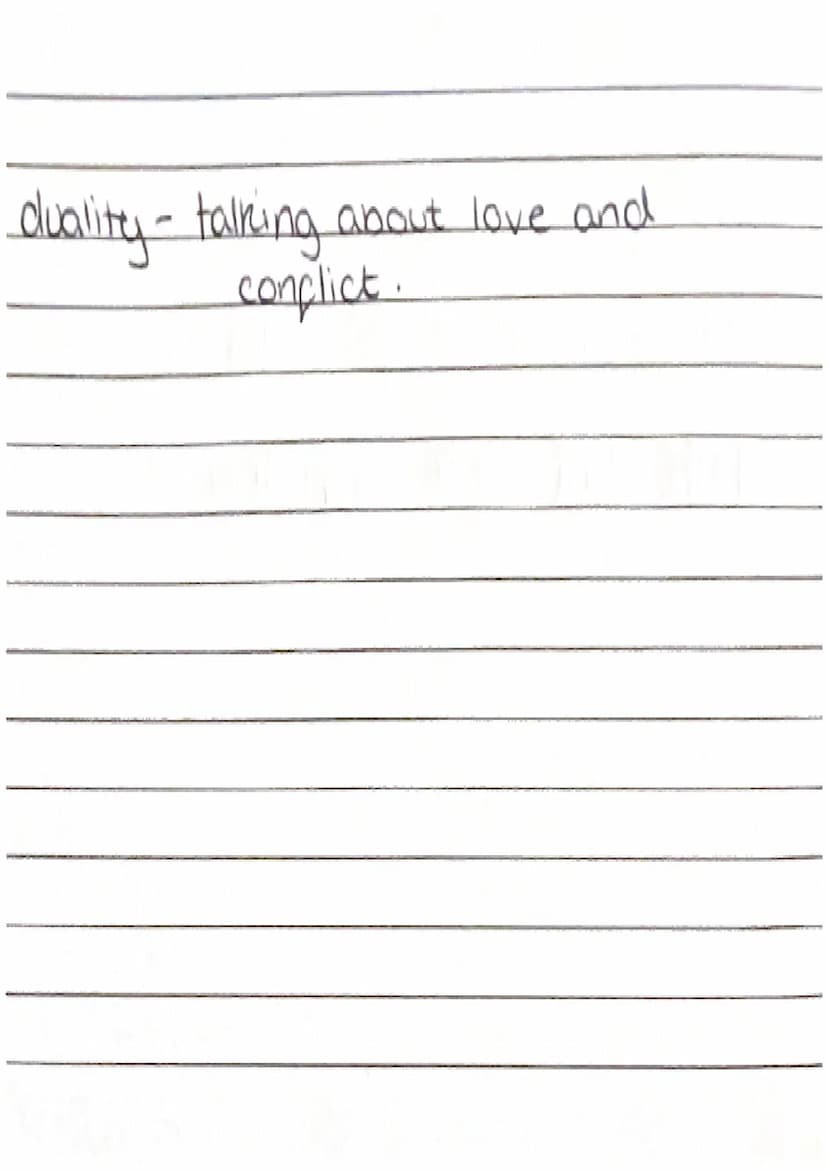 duality - talking about love and
conflict.